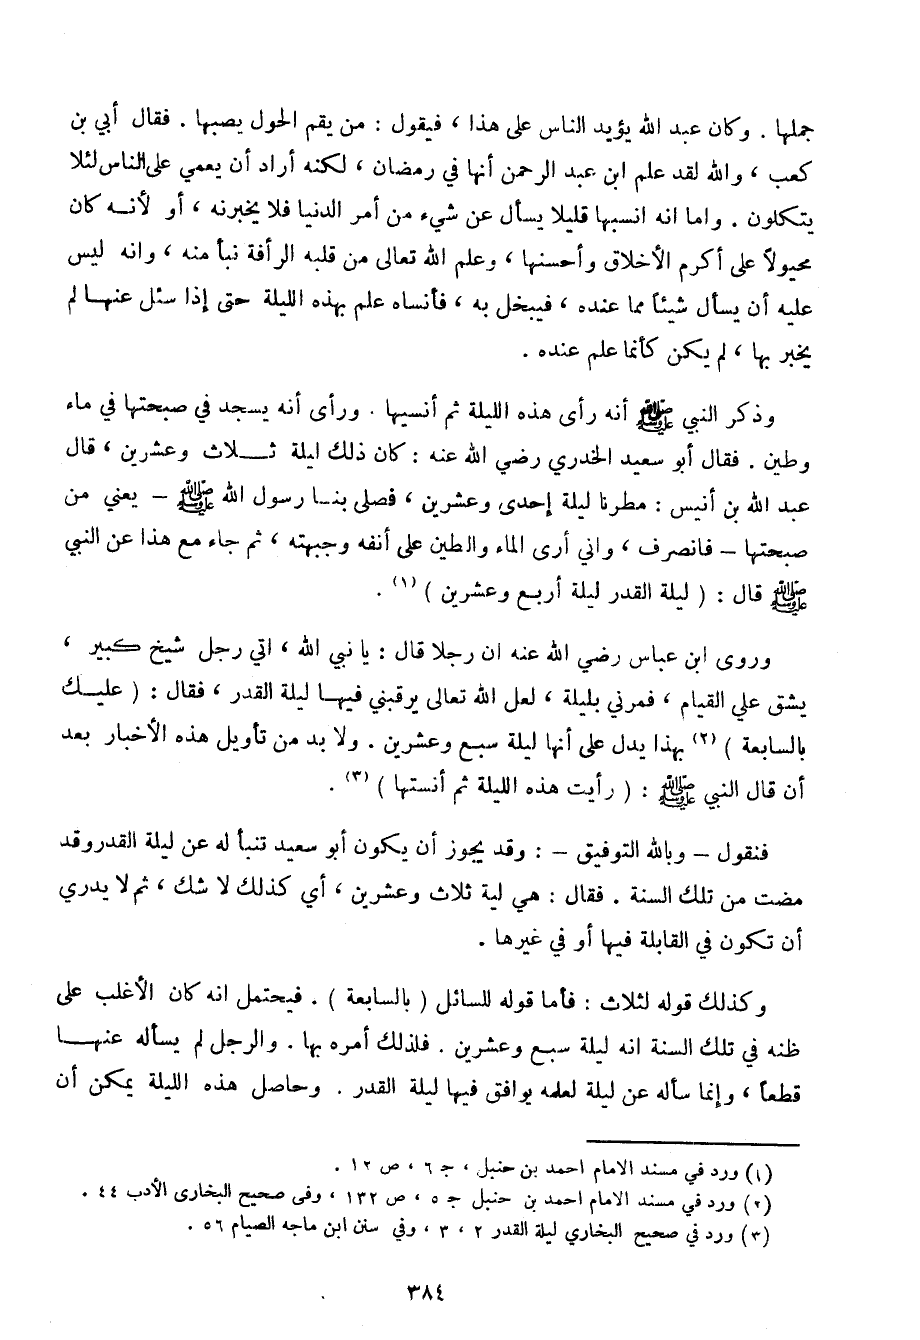 جملها . وكان عبد الله يؤيد الناس على هذا ، فيقول : من يقم الحول يصبها . فقال أبي بن
كعب ، والله لقد علم ابن عبد الرحمن أنها في رمضان ، لكنه أراد أن يعمي على الناس لئلا
يتكلون . واما انه انسبها قليلا يسأل عن شيء من أمر الدنيا فلا يخبرنه ، أو لأنه كان
محيولاً على أكرم الأخلاق وأحسنها ، وعلم الله تعالى من قلبه الرأفة نبأ منه ، وانه ليس
عليه أن يسأل شيئاً مما عنده ، فيبخل به ، فأنساه علم بهذه الليلة حتى إذا سئل عنها لم
يخبر بها ، لم يكن كأنما علم عنده .
وذكر النبي ﷺ أنه رأى هذه الليلة ثم أنسيها . ورأى أنه يسجد في صبحتها في ماء
وطين . فقال أبو سعيد الخدري رضي الله عنه : كان ذلك ليلة ثلاث وعشرين ، قال
عبد الله بن أنيس : مطرنا ليلة إحدى وعشرين ، فصلى بنا رسول الله ﷺ - يعني من
صبحتها - فانصرف ، واني أرى الماء والطين على أنفه وجبهته ، ثم جاء مع هذا عن النبي
ﷺ قال : ( ليلة القدر ليلة أربع وعشرين ) (١) .
وروى ابن عباس رضي الله عنه ان رجلا قال : يا نبي الله ، اتي رجل شيخ كبير ،
يشق علي القيام ، فمرني بليلة ، لعل الله تعالى يرقبني فيها ليلة القدر ، فقال : ( عليك
بالسابعة ) (٢) بهذا يدل على أنها ليلة سبع وعشرين . ولا بد من تأويل هذه الأخبار بعد
أن قال النبي ﷺ : ( رأيت هذه الليلة ثم أنستها ) (٣) .
فنقول - وبالله التوفيق - : وقد يجوز أن يكون أبو سعيد تنبأ له عن ليلة القدروقد
مضت من تلك السنة . فقال : هي لية ثلاث وعشرين ، أي كذلك لا شك ، ثم لا يدري
أن تكون في القابلة فيها أو في غيرها .
وكذلك قوله لثلاث : فأما قوله للسائل ( بالسابعة ) . فيحتمل انه كان الأغلب على
ظنه في تلك السنة انه ليلة سبع وعشرين . فلذلك أمره بها . والرجل لم يسأله عنها
قطعاً ، وإنما سأله عن ليلة لعله يوافق فيها ليلة القدر . وحاصل هذه الليلة يمكن أن
(١) ورد في مسند الامام احمد بن حنبل ، جـ ٦ ، ص ١٢ .
(٢) ورد في مسند الامام احمد بن حنبل جـ ٥ ، ص ١٣٢ ، وفى صحيح البخارى الأدب ٤٤ .
(٣) ورد في صحيح البخاري ليلة القدر ٢ ، ٣ ، وفي سنن ابن ماجه الصيام ٥٦ .
٣٨٤